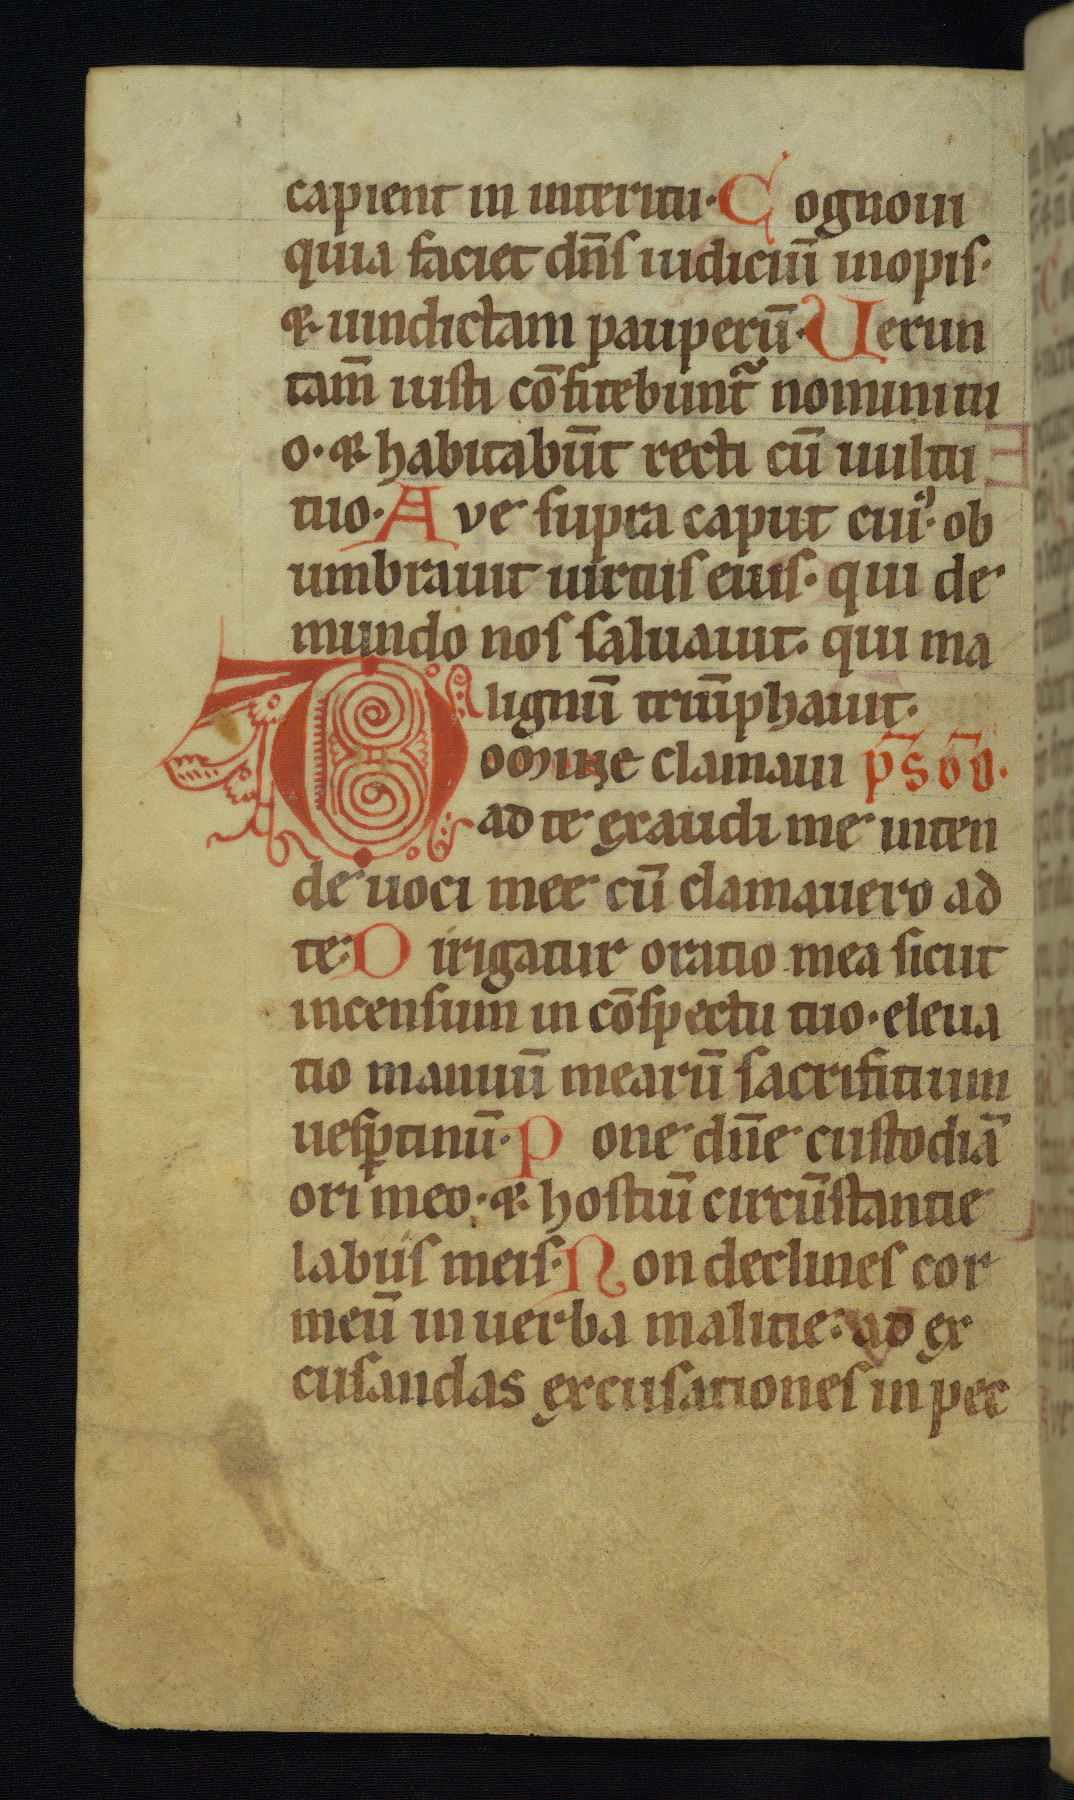 capient in interitu· Cognoui
quia faciet dn̄s iudiciū inopis·
⁊ uindictam pauperū· Uerun
tam̄ iusti cōfitebunt᷑ nomini tu
o· ⁊ habitabūt recti cū uultu
tuo· Ave supra caput cui᷒· ob
umbrauit uirtus eius· qui de
mundo nos saluauit· qui ma
lignū triūphauit·
Domine clamaui
ad te exaudi me inten
de uoci mee cū clamauero ad
te: Dirigatur oratio mea sicut
incensum in cōspectu tuo· eleua
tio manuū mearū sacrifitium
uesꝑtinū· Pone dn̄e custodiā
ori meo· ⁊ hostiū circūstantie
labiis meis· Non declines cor
meū in uerba malitie: ad ex
cusandas excusationes in pec